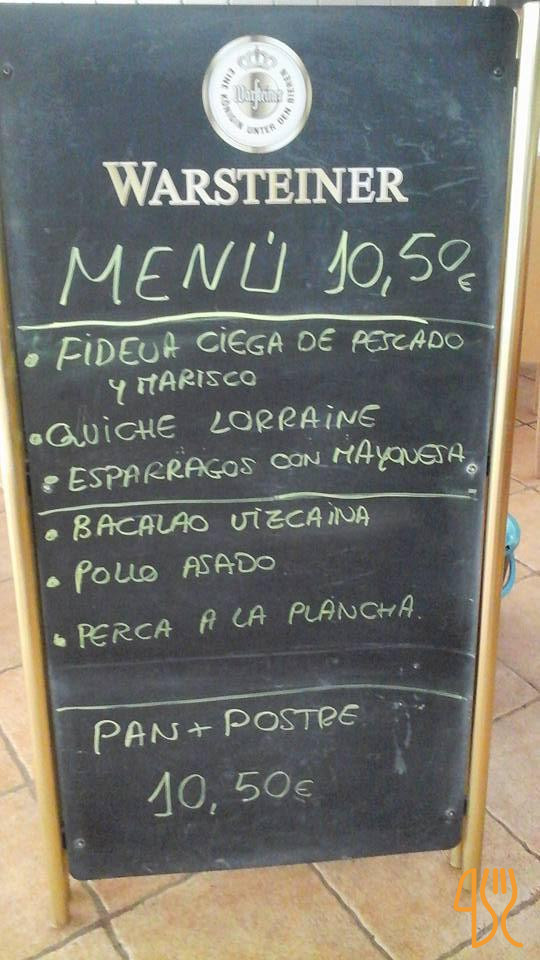 EINE KÖNIGIN UNTER DEN BIEREN
Warsteiner
WARSTEINER
MENÚ 10,50€
• FIDEUA CIEGA DE PESCADO
Y MARISCO
• QUICHE LORRAINE
• ESPARRAGOS CON MAYONESA
• BACALAO VIZCAINA
• POLLO ASADO
• PERCA A LA PLANCHA.
PAN + POSTRE
10,50€